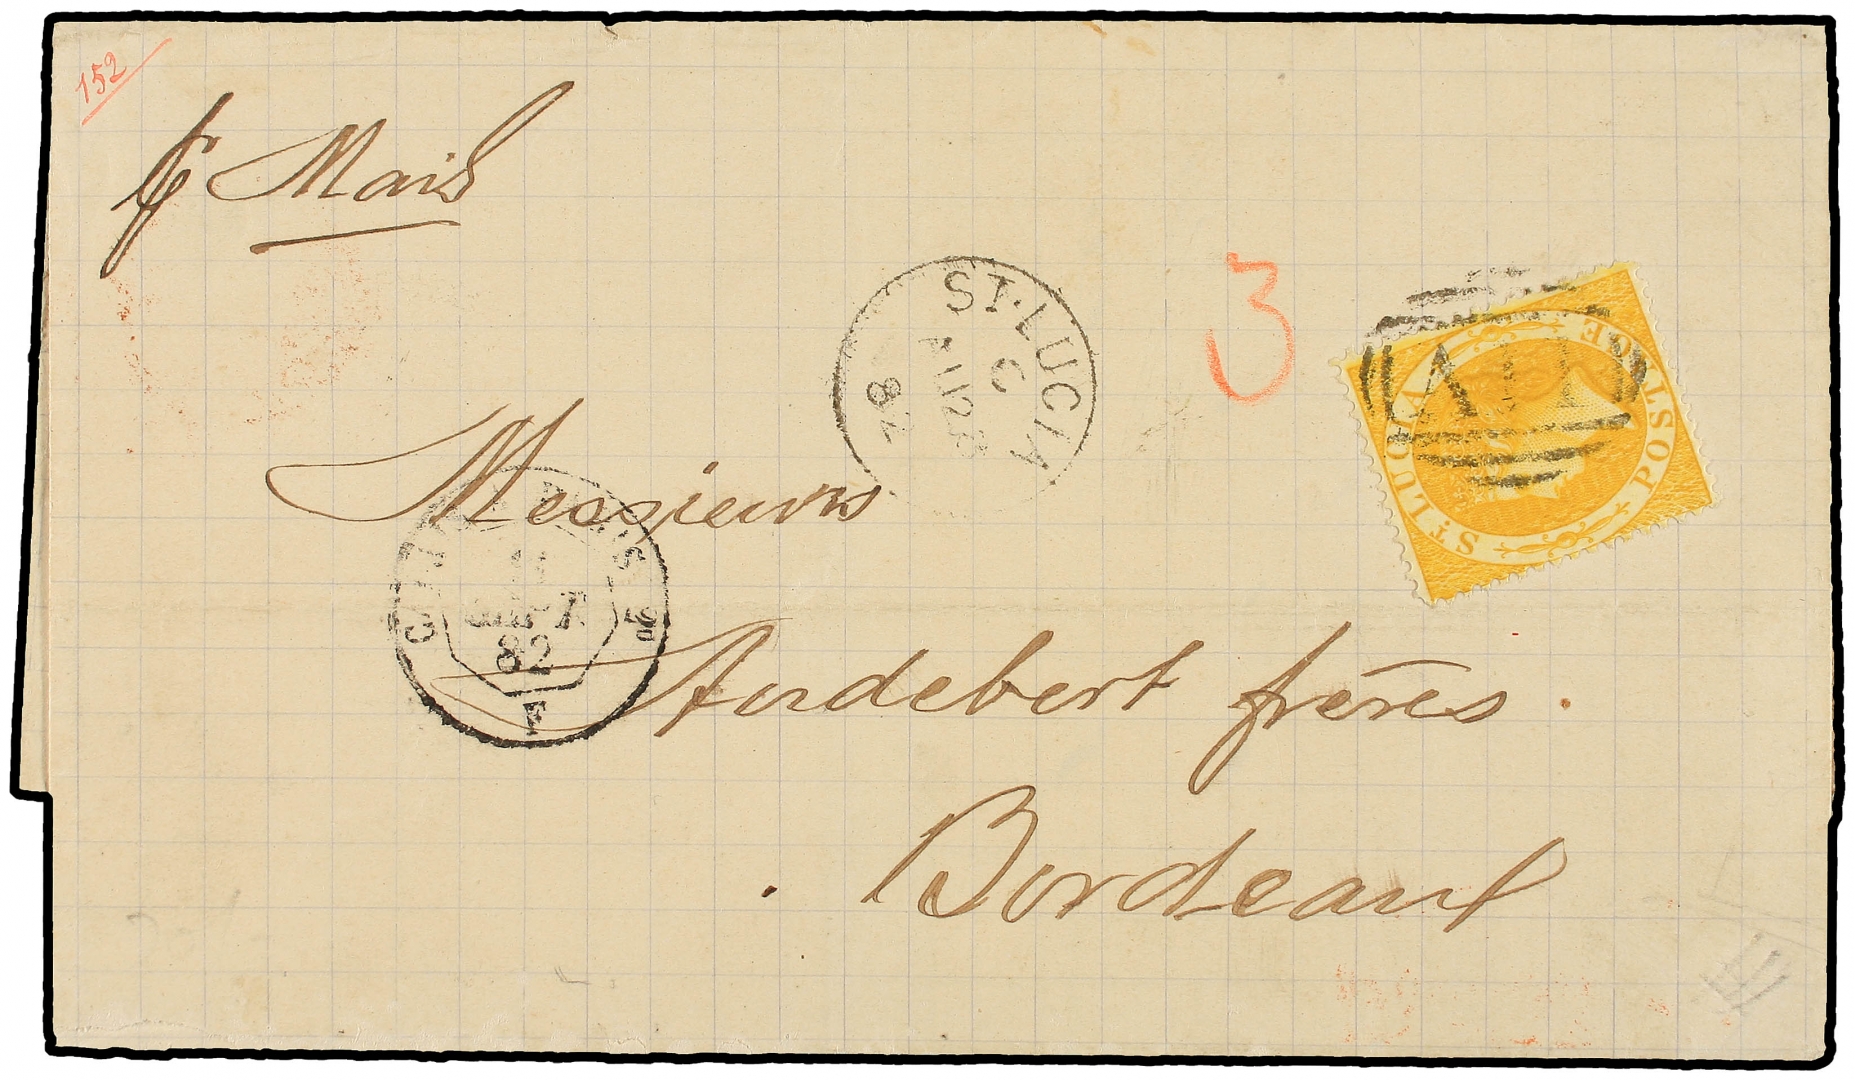 152
p Mail
ST. LUCIA
C
AU 28
82
3
A11
ST LUCIA POSTAGE
Messieurs
SEPT
82
F
Audebert frères.
Bordeaux